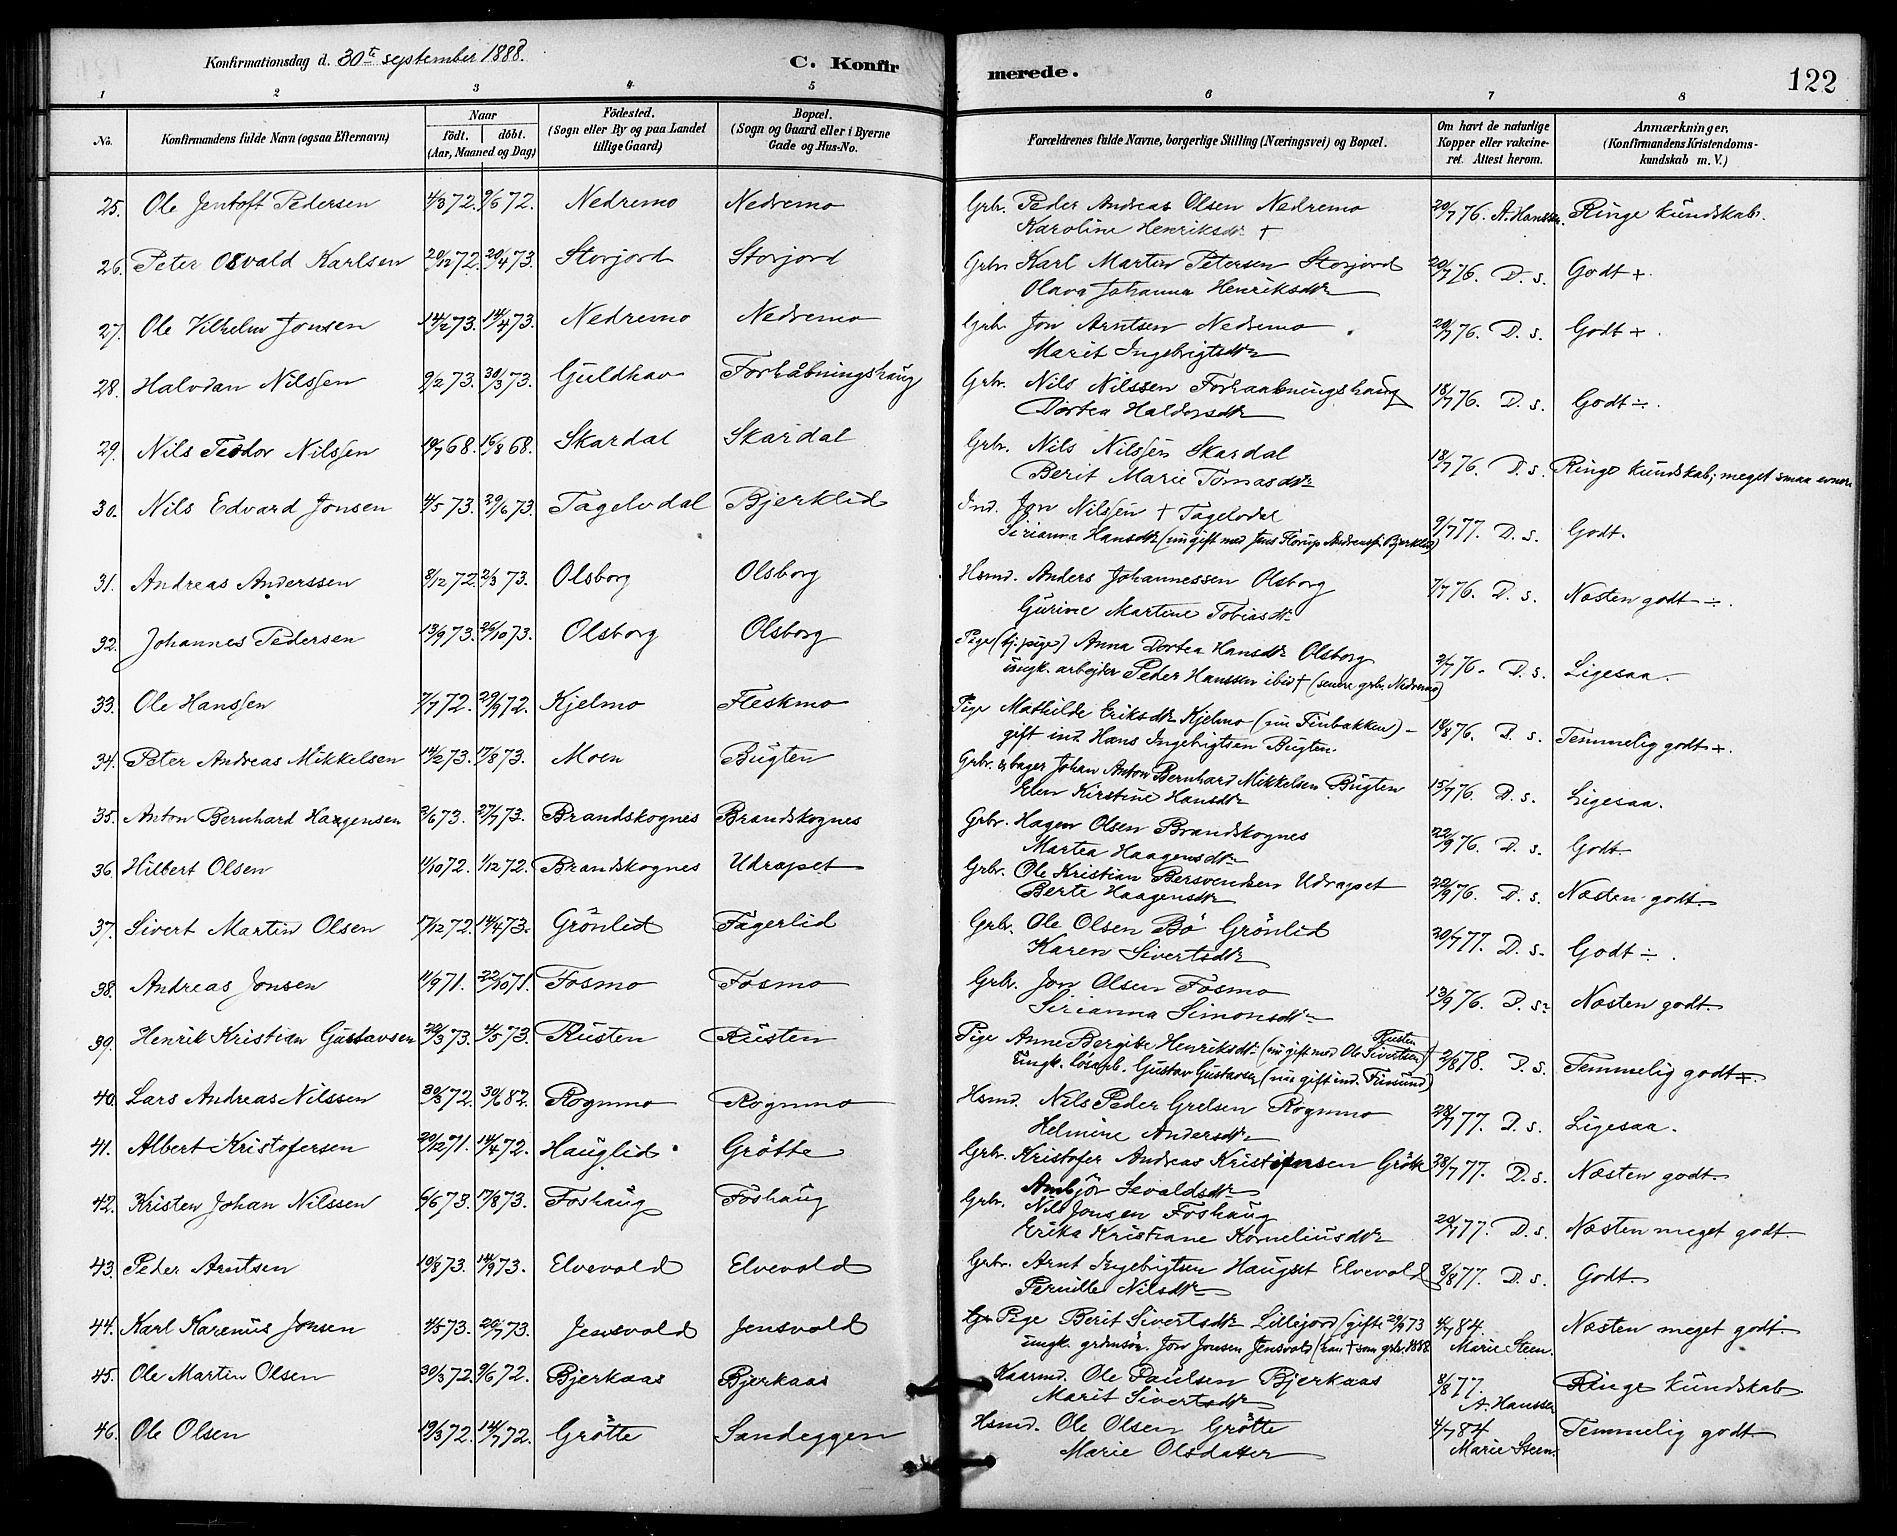 Konfirmationsdag d. 30te september 1888.
C. Konfirmerede.
122
1 2 3 4 5 6 7 8
No. Konfirmandens fulde Navn (ogsaa Efternavn) Naar födt. döbt. (Aar, Maaned og Dag) Födested. (Sogn eller By og paa Landet tillige Gaard) Bopæl. (Sogn og Gaard eller i Byerne Gade og Hus-No. Forældrenes fulde Navne, borgerlige Stilling (Næringsvei) og Bopæl. Om havt de naturlige Kopper eller vakcineret. Attest herom. Anmærkninger. (Konfirmandens Kristendomskundskab m. V.)
25. Ole Jentoft Pedersen 4/3 72. 9/6 72. Nedremo Nedremo Grbr. Peder Andreas Olsen Nedremo 20/7 76. A. Hanssen. Ringe kundskab.
Karoline Henriksdtr +
26. Peter Osvald Karlsen 20/12 72. 20/4 73. Storjord Storjord Grbr. Karl Martin Petersen Storjord 20/7 76. D. s. Godt +.
Olava Johanna Henriksdtr
27. Ole Vilhelm Jonsen 14/2 73. 14/4 73. Nedremo Nedremo Grbr. Jon Arntsen Nedremo 20/7 76. D. s. Godt +.
Marit Ingebrigtsdtr
28. Halvdan Nilssen 9/2 73. 30/3 73. Guldhav Forhåbningshaug Grbr. Nils Nilssen Forhaabningshaug 18/7 76. D. s. Godt ÷.
Dortea Haldorsdtr
29. Nils Teodor Nilssen 19/7 68. 16/8 68. Skardal Skardal Grbr. Nils Nilssen Skardal 18/7 76. D. s. Ringe kundskab; meget smaa evner
Berit Marie Tomasdtr
30. Nils Edvard Jonsen 4/5 73. 29/6 73. Tagelvdal Bjerklid Ind. Jon Nilssen + Tagelvdal 9/7 77. D. s. Godt.
Sirianna Hansdtr (nu gift med Jens Florup Andreass. Bjerklid)
31. Andreas Anderssen 8/12 72. 2/3 73. Olsborg Olsborg Hsmd. Anders Johannessen Olsborg 7/7 76. D. s. Næsten godt ÷.
Gurine Martine Tobiasdtr
32. Johannes Pedersen 13/9 73. 26/10 73. Olsborg Olsborg Pige (tj. pige) Anna Dortea Hansdtr Olsborg 2/7 76. D. s. Ligesaa.
ungk. arbejder Peder Hanssen ibid + (senere grbr. Nedremo)
33. Ole Hanssen 7/7 72. 29/9 72. Kjelmo Fleskmo Pige Mathilde Eriksdtr Kjelmo (nu Finbakken) - 18/8 76. D. s. Temmelig godt +.
gift ind. Hans Ingebrigtsen Bugten.
34. Peter Andreas Mikkelsen 14/2 73. 17/8 73. Moen Bugten Grbr. & bager Johan Anton Bernhard Mikkelsen Bugten 15/7 76. D. s. Ligesaa.
Elen Kirstine Hansdtr
35. Anton Bernhard Haagensen 2/6 73. 27/7 73. Brandskognes Brandskognes Grbr. Hagen Olsen Brandskognes 22/9 76. D. s. Godt.
Martea Haagensdtr
36. Hilbert Olsen 11/10 72. 1/12 72. Brandskognes Udrapet Grbr. Ole Kristian Bersvendsen Udrapet 22/9 76. D. s. Næsten godt.
Berte Haagensdtr
37. Sivert Martin Olsen 17/12 72. 14/4 73. Grönlid Fagerlid Grbr. Ole Olsen Bö Grönlid 30/7 77. D. s. Godt ÷.
Karen Sivertsdtr
38. Andreas Jonsen 11/9 71. 22/10 71. Fosmo Fosmo Grbr. Jon Olsen Fosmo 13/9 76. D. s. Næsten godt.
Sirianna Simonsdtr
39. Henrik Kristian Gustavsen 20/3 73. 4/5 73. Rusten Rusten Pige Anne Bergitte Henriksdtr (nu gift med Ole Sivertsen Rusten) 2/8 78. D. s. Temmelig godt +.
Ungk. lösarb. Gustav Gustavsen (nu gift ind. Finsund)
40. Lars Andreas Nilssen 30/3 72. 30/6 82. Rognmo Rognmo Hsmd. Nils Peder Grelsen Rognmo 28/7 77. D. s. Ligesaa.
Helmine Andersdtr
41. Albert Kristofersen 20/12 71. 14/4 72. Hauglid Grötte Grbr. Kristofer Andreas Kristensen Grötte 28/7 77. D. s. Næsten godt.
Ambjör Sevaldsdtr
42. Kristen Johan Nilssen 6/6 73. 17/8 73. Foshaug Foshaug Grbr. Nils Jonsen Foshaug 20/7 77. D. s. Næsten meget godt.
Erika Kristiane Korneliusdtr
43. Peder Arntsen 19/8 73. 14/9 73. Elvevold Elvevold Grbr. Arnt Ingebrigtsen Haugset Elvevold 8/8 77. D. s. Godt.
Pernille Nilsdtr
44. Karl Karenus Jonsen 4/5 73. 20/7 73. Jensvold Jensvold Pige Berit Sivertsdtr Lillejord (gifte 29/9 73 4/7 84. Marie Steen. Næsten meget godt.
ungk. grdmsön. Jon Jonsen Jensvold (han + som grbr. 1888
45. Ole Martin Olsen 30/3 72. 9/6 72. Bjerkaas Bjerkaas Kaarmd. Ole Paulsen Bjerkaas 8/8 77. A. Hanssen Ringe kundskab
Marit Sivertsdtr
46. Ole Olsen 19/3 72. 14/7 72. Grötte Sandeggen Hsmd. Ole Olsen Grötte 4/7 84 Marie Steen. Temmelig godt.
Marie Olsdatter